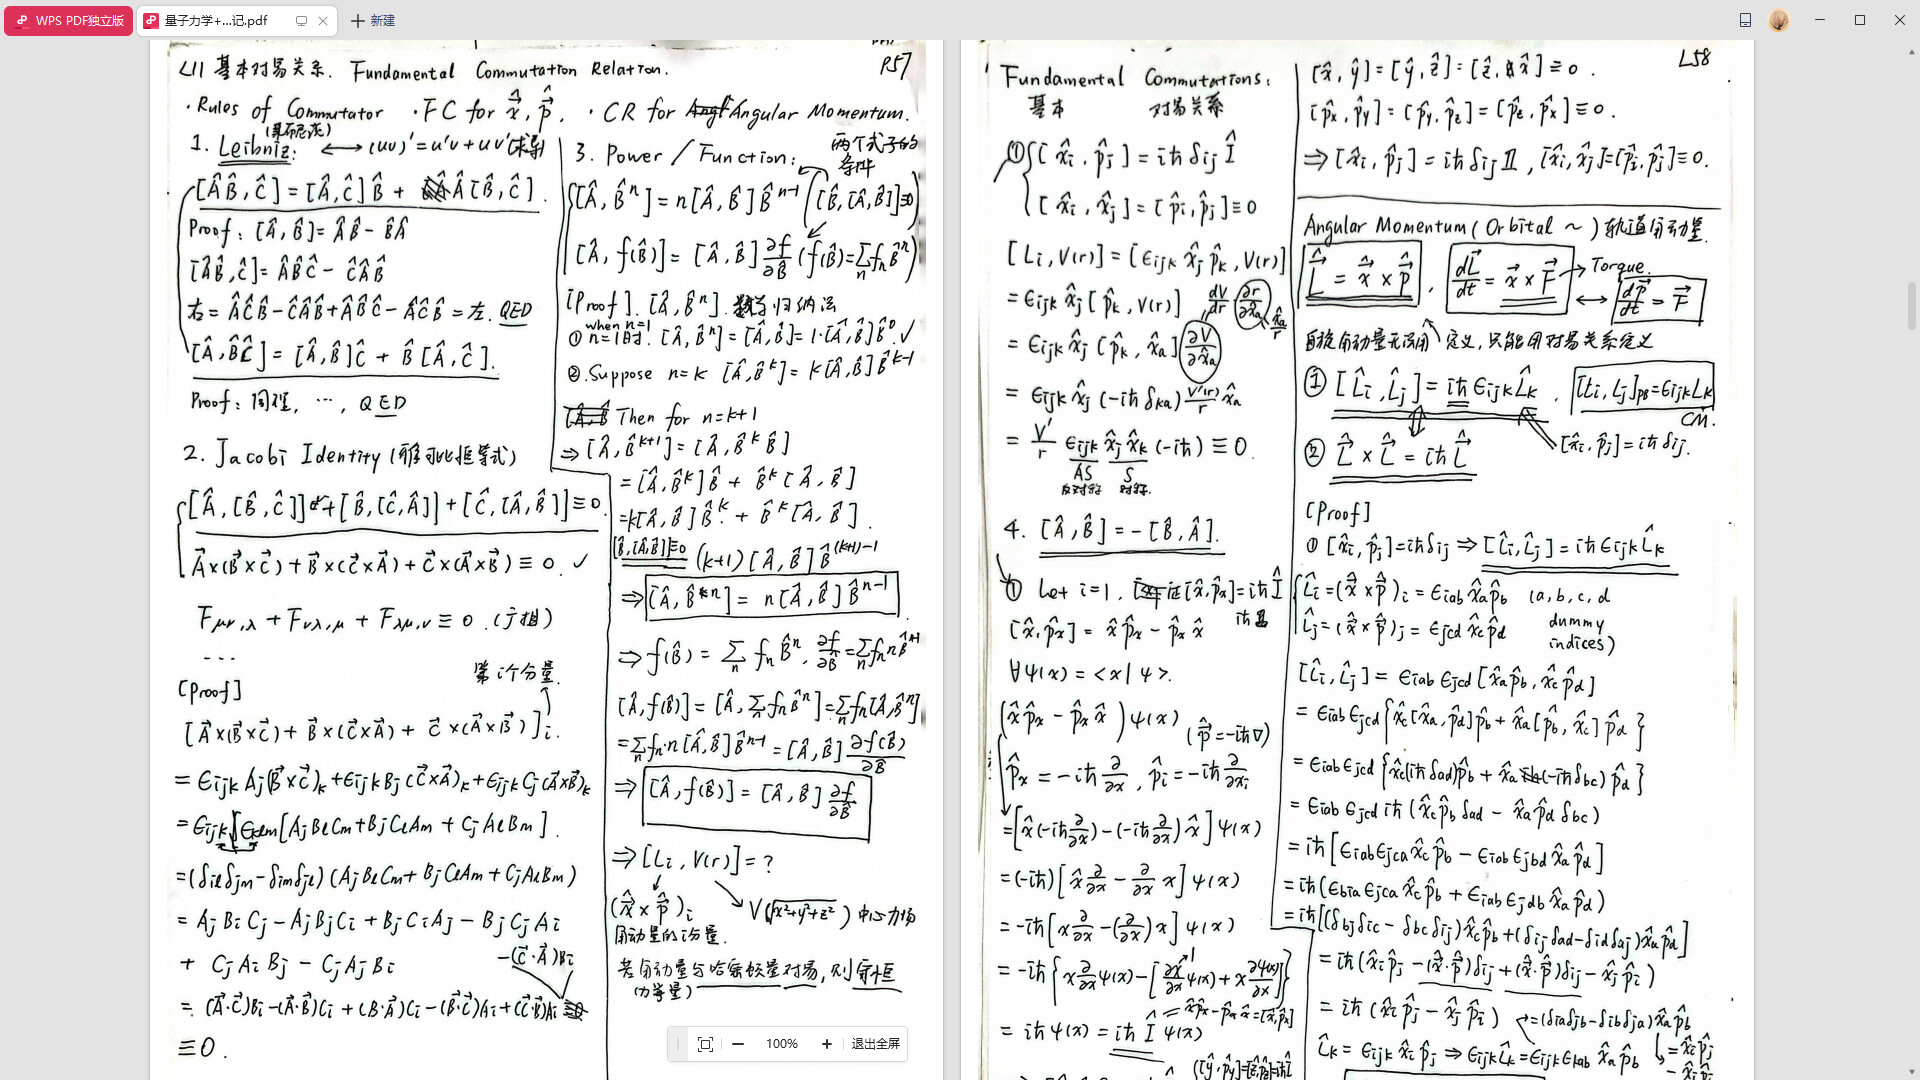 WPS PDF独立版
量子力学+...记.pdf
新建
L11 基本对易关系. Fundamental Commutation Relation.
P57
·Rules of Commutator ·FC for x̂, p̂. ·CR for Angular Momentum.
(莱布尼茨)
1. Leibniz: ⟷ (uv)'=u'v+uv' (求导)
[ÂB̂, Ĉ] = [Â,Ĉ]B̂ + Â[B̂,Ĉ].
Proof: [Â,B̂] = ÂB̂ - B̂Â
[ÂB̂,Ĉ] = ÂB̂Ĉ - ĈÂB̂
右 = ÂĈB̂ - ĈÂB̂ + ÂB̂Ĉ - ÂĈB̂ = 左. QED
[Â,B̂Ĉ] = [Â,B̂]Ĉ + B̂[Â,Ĉ].
Proof: 同理, ..., QED
2. Jacobi Identity (雅可比恒等式)
[Â,[B̂,Ĉ]] + [B̂,[Ĉ,Â]] + [Ĉ,[Â,B̂]] ≡ 0.
A⃗×(B⃗×C⃗) + B⃗×(C⃗×A⃗) + C⃗×(A⃗×B⃗) ≡ 0. ✓
Fμν,λ + Fνλ,μ + Fλμ,ν ≡ 0. (广相)
...
第i个分量.
[Proof]
[A⃗×(B⃗×C⃗) + B⃗×(C⃗×A⃗) + C⃗×(A⃗×B⃗)]i.
= ϵijk Aj(B⃗×C⃗)k + ϵijk Bj(C⃗×A⃗)k + ϵijk Cj(A⃗×B⃗)k
= ϵijk ϵklm [AjBlCm + BjClAm + CjAlBm].
= (δilδjm - δimδjl)(AjBlCm + BjClAm + CjAlBm)
= AjBiCj - AjBjCi + BjCiAj - BjCjAi
+ CjAiBj - CjAjBi
-(C⃗·A⃗)Bi
= (A⃗·C⃗)Bi - (A⃗·B⃗)Ci + (B⃗·A⃗)Ci - (B⃗·C⃗)Ai + (C⃗·B⃗)Ai
≡ 0.
两个式子的
条件
3. Power / Function:
[Â,B̂ⁿ] = n[Â,B̂]B̂ⁿ⁻¹ ([B̂,[Â,B̂]]≡0)
[Â,f(B̂)] = [Â,B̂] ∂f/∂B̂ (f(B̂)=∑n fnB̂ⁿ)
[Proof]. [Â,B̂ⁿ]. 数学归纳法
when n=1
① n=1时. [Â,B̂ⁿ] = [Â,B̂] = 1·[Â,B̂]B̂⁰. ✓
②. Suppose n=k [Â,B̂ᵏ] = k[Â,B̂]B̂ᵏ⁻¹
Then for n=k+1
⇒ [Â,B̂ᵏ⁺¹] = [Â,B̂ᵏB̂]
= [Â,B̂ᵏ]B̂ + B̂ᵏ[Â,B̂]
= k[Â,B̂]B̂ᵏ + B̂ᵏ[Â,B̂].
[B̂,[Â,B̂]]≡0 (k+1)[Â,B̂]B̂⁽ᵏ⁺¹⁾⁻¹
⇒ [Â,B̂ⁿ] = n[Â,B̂]B̂ⁿ⁻¹
⇒ f(B̂) = ∑n fnB̂ⁿ, ∂f/∂B̂ = ∑n fn nB̂ⁿ⁻¹
[Â,f(B̂)] = [Â,∑n fnB̂ⁿ] = ∑n fn[Â,B̂ⁿ]
= ∑n fn·n[Â,B̂]B̂ⁿ⁻¹ = [Â,B̂] ∂f(B̂)/∂B̂
⇒ [Â,f(B̂)] = [Â,B̂] ∂f/∂B̂
⇒ [Li,V(r)] = ?
(x̂×p̂)i V(√x²+y²+z²) 中心力场
角动量的i分量.
若角动量与哈密顿量对易, 则守恒
(力学量)
100%
退出全屏
Fundamental Commutations:
基本 对易关系
① [x̂i,p̂j] = iħδij Î
[x̂i,x̂j] = [p̂i,p̂j] ≡ 0
[Li,V(r)] = [ϵijk x̂j p̂k, V(r)]
= ϵijk x̂j [p̂k,V(r)] dV/dr · ∂r/∂x̂a x̂a/r
= ϵijk x̂j [p̂k,x̂a] ∂V/∂x̂a
= ϵijk x̂j (-iħδka) V'(r)/r x̂a
= V'/r ϵijk x̂j x̂k (-iħ) ≡ 0.
AS S
反对称 对称.
4. [Â,B̂] = -[B̂,Â].
① Let i=1, 证[x̂,p̂x]=iħÎ
[x̂,p̂x] = x̂p̂x - p̂xx̂
∀ψ(x) = <x|ψ>.
(x̂p̂x - p̂xx̂)ψ(x) (p̂=-iħ∇)
p̂x = -iħ ∂/∂x, p̂i = -iħ ∂/∂xi
= [x̂(-iħ ∂/∂x) - (-iħ ∂/∂x)x̂]ψ(x)
= (-iħ)[x̂ ∂/∂x - ∂/∂x x]ψ(x)
= -iħ[x ∂/∂x - (∂/∂x)x]ψ(x)
= -iħ{x ∂/∂x ψ(x) - [∂x/∂x ψ(x) + x ∂ψ(x)/∂x]}
= x̂p̂x - p̂xx̂ = [x̂,p̂x]
= iħψ(x) = iħ Î ψ(x)
([ŷ,p̂y]=[ẑ,p̂z]=iħÎ
L58
[x̂,ŷ] = [ŷ,ẑ] = [ẑ,x̂] ≡ 0.
[p̂x,p̂y] = [p̂y,p̂z] = [p̂z,p̂x] ≡ 0.
⇒ [x̂i,p̂j] = iħδij 𝟙, [x̂i,x̂j]=[p̂i,p̂j]≡0.
Angular Momentum (Orbital ~) 轨道角动量.
L̂ = x̂×p̂, dL⃗/dt = x⃗×F⃗ → Torque.
⟷ dp⃗/dt = F⃗
自旋角动量无法用 定义, 只能用对易关系定义
① [L̂i,L̂j] = iħϵijkL̂k. [Li,Lj]PB=ϵijkLk
CM.
② L̂×L̂ = iħL̂ [x̂i,p̂j]=iħδij.
[Proof]
① [x̂i,p̂j]=iħδij ⇒ [L̂i,L̂j] = iħϵijkL̂k
L̂i = (x̂×p̂)i = ϵiab x̂ap̂b (a,b,c,d
L̂j = (x̂×p̂)j = ϵjcd x̂cp̂d dummy
indices)
[L̂i,L̂j] = ϵiab ϵjcd [x̂ap̂b,x̂cp̂d]
= ϵiab ϵjcd {x̂c[x̂a,p̂d]p̂b + x̂a[p̂b,x̂c]p̂d}
= ϵiab ϵjcd {x̂c(iħδad)p̂b + x̂a(-iħδbc)p̂d}
= ϵiab ϵjcd iħ(x̂cp̂bδad - x̂ap̂dδbc)
= iħ[ϵiabϵjca x̂cp̂b - ϵiabϵjbd x̂ap̂d]
= iħ(ϵbiaϵjca x̂cp̂b + ϵiabϵjdb x̂ap̂d)
= iħ[(δbjδic - δbcδij)x̂cp̂b + (δijδad - δidδaj)x̂ap̂d]
= iħ(x̂ip̂j - (x̂·p̂)δij + (x̂·p̂)δij - x̂jp̂i)
= iħ(x̂ip̂j - x̂jp̂i) = (δiaδjb - δibδja)x̂ap̂b
L̂k = ϵijk x̂ip̂j ⇒ ϵijkL̂k = ϵijkϵkab x̂ap̂b = x̂ip̂j
- x̂jp̂i